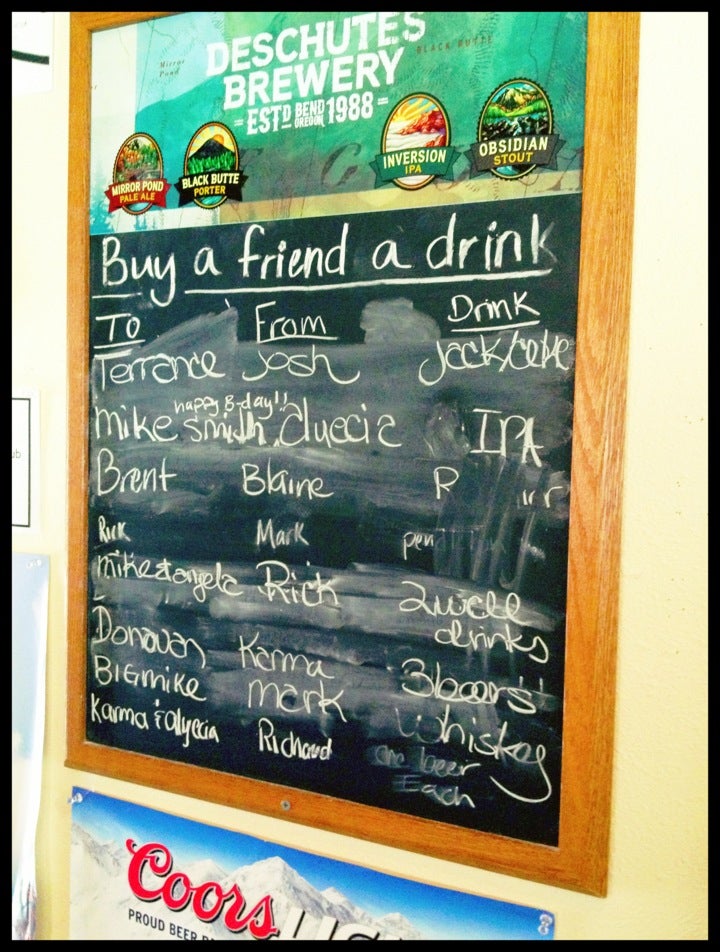 Mirror Pond
BLACK BUTTE
DESCHUTES
BREWERY
ESTD BEND OREGON 1988
MIRROR POND
PALE ALE
BLACK BUTTE
PORTER
INVERSION
IPA
OBSIDIAN
STOUT
Buy a friend a drink
To From Drink
Terrance Josh Jack/coke
happy B-day!!
mike smith IPA
Brent Blaine R
Rick Mark
mike & angela Rick 2 well
drinks
Donovan Karma 3 beers
BIG mike mark Whiskey
Karma & alyecia Richard one beer
Each
Coors
PROUD BEER